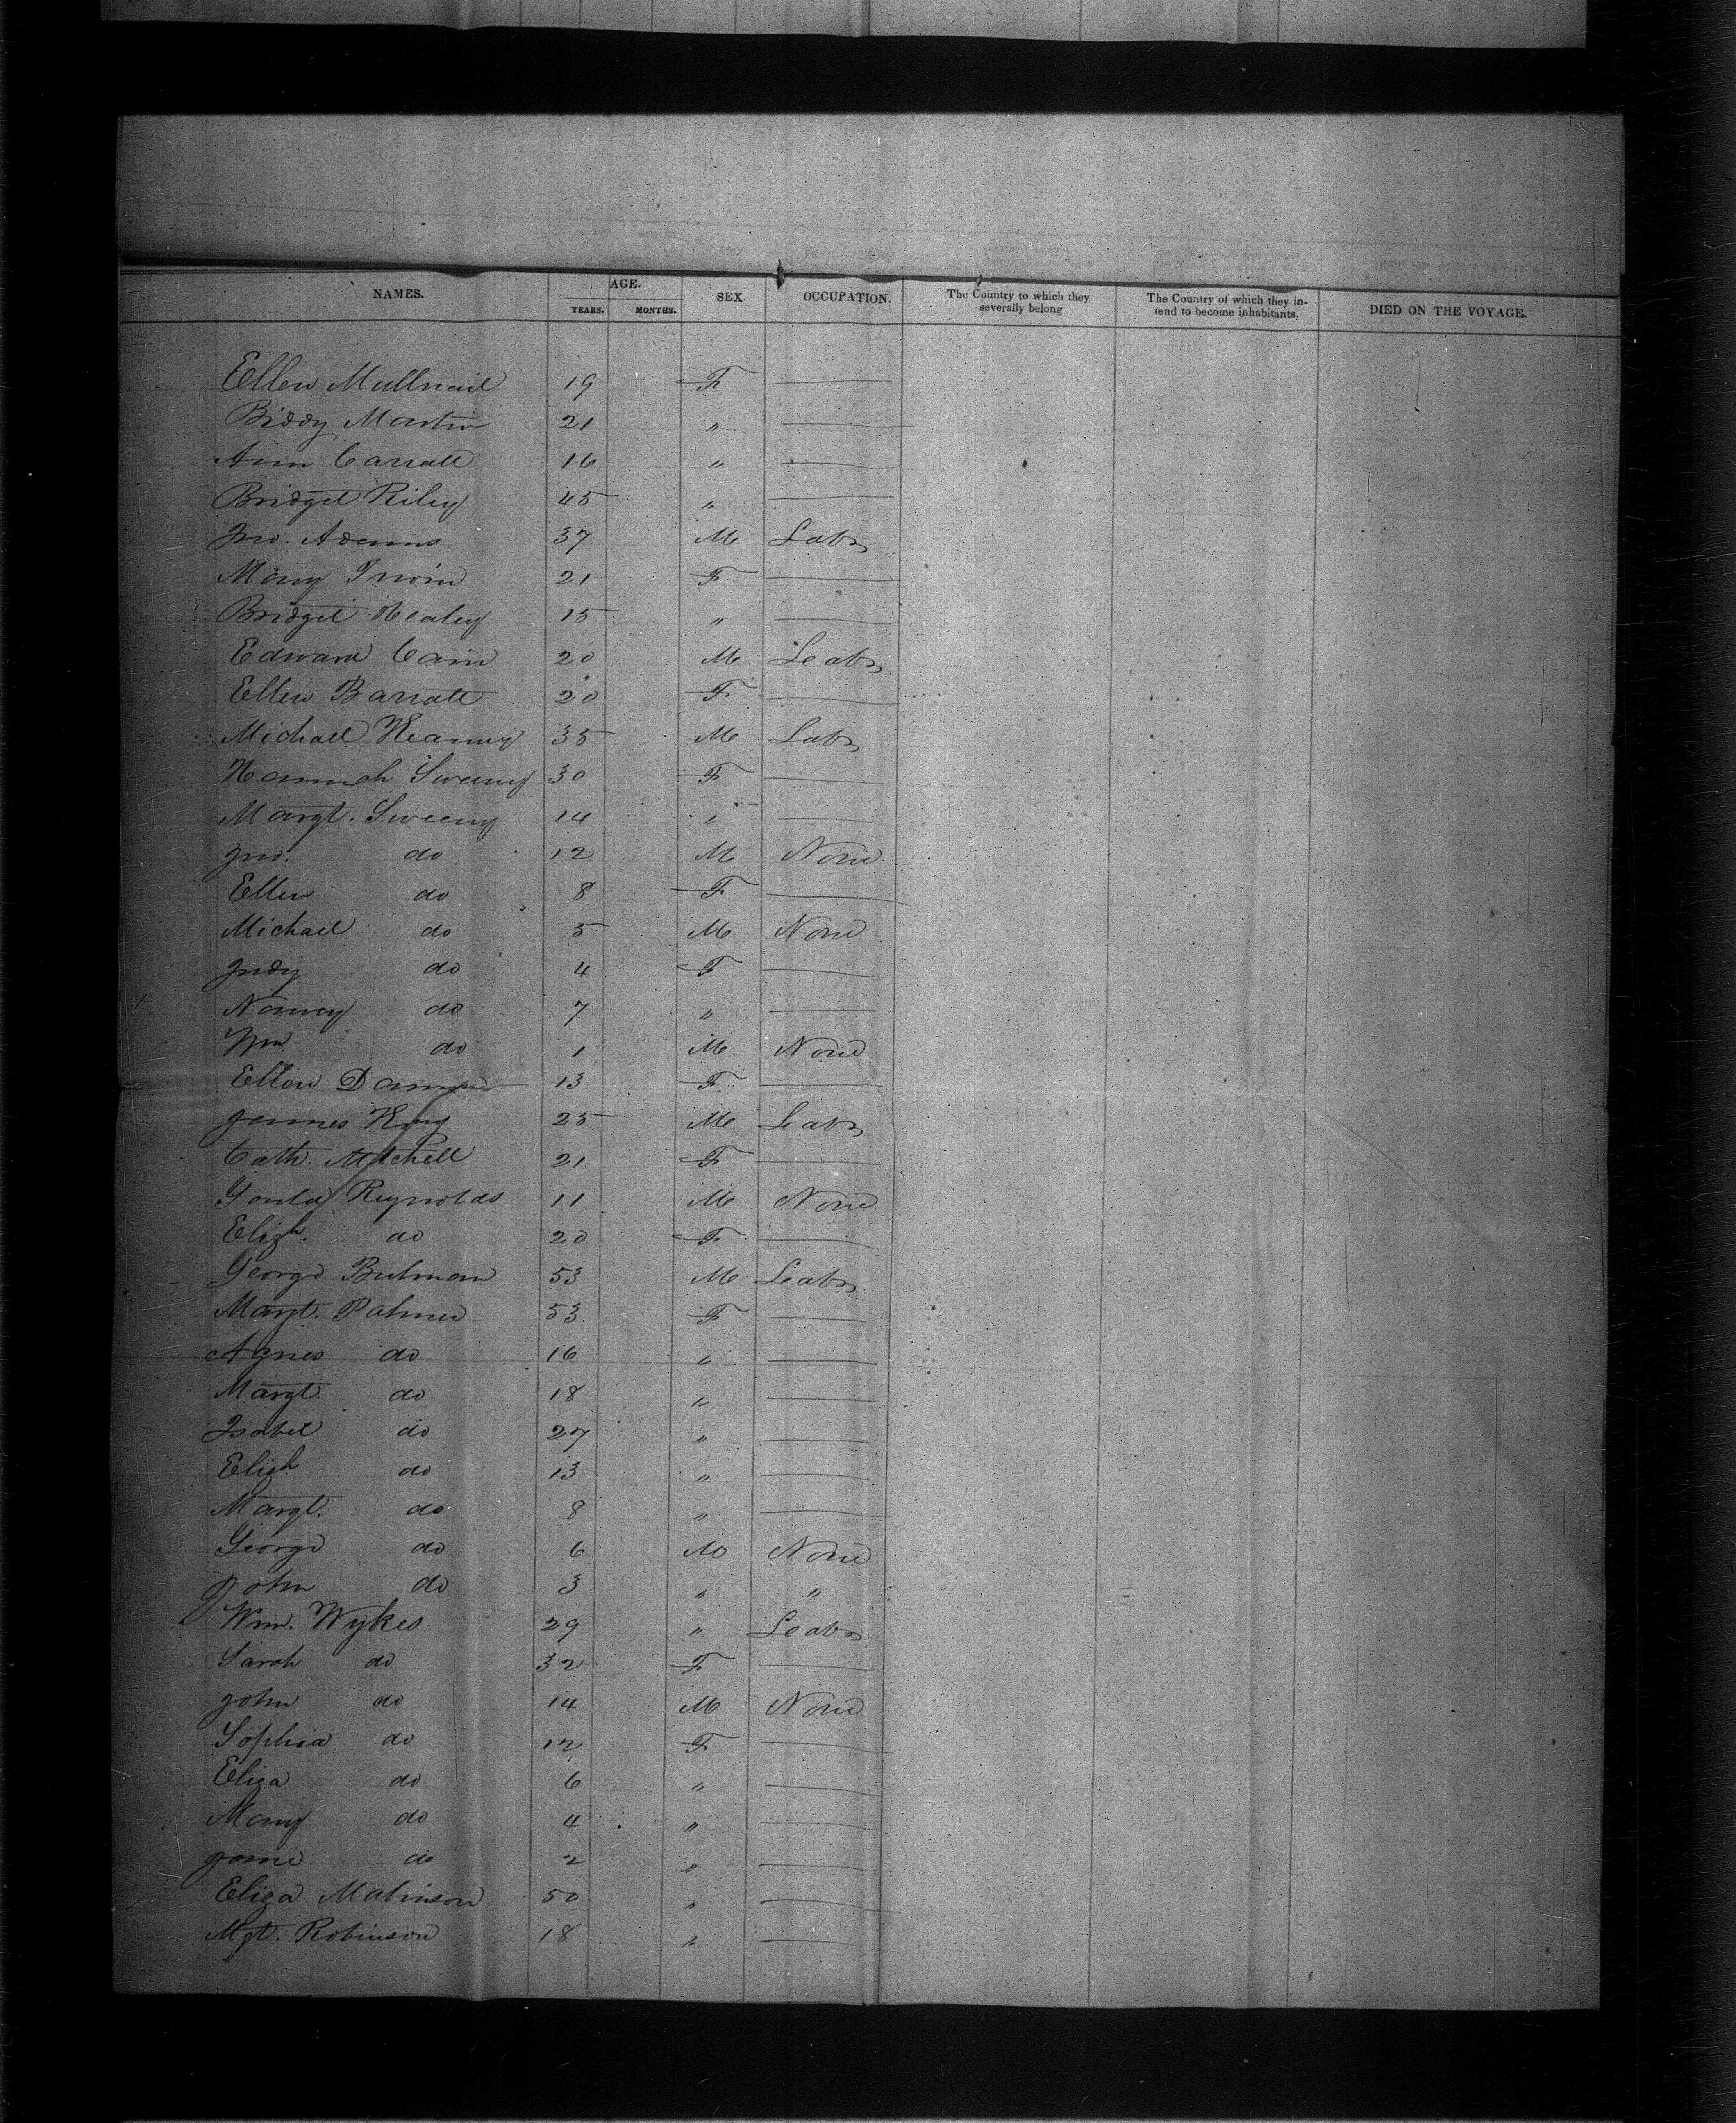 NAMES. AGE. YEARS. MONTHS. SEX. OCCUPATION. The Country to which they severally belong The Country of which they intend to become inhabitants. DIED ON THE VOYAGE.
Ellen Mullnail 19 F —
Biddy Martin 21 " —
Ann Carratt 16 " —
Bridget Riley 45 " —
Jno. Adams 37 M Labr
Mary Irwin 21 F —
Bridget Healey 15 " —
Edward Cain 20 M Labr
Ellen Barratt 20 F —
Michael Keanny 35 M Labr
Hannah Sweeny 30 F —
Margt. Sweeny 14 " —
Jno. do 12 M None
Ellen do 8 F —
Michael do 5 M None
Judy do 4 F —
Nancy do 7 " —
Wm. do 1 M None
Ellen 13 F —
James King 25 M Labr
Cath. Mitchell 21 F —
Reynolds 11 M None
Elizh. do 20 F —
George Bulman 53 M Labr
Margt. Palmer 53 F —
Agnes do 16 " —
Margt. do 18 " —
Isabel do 27 " —
Elizh. do 13 " —
Margt. do 8 " —
George do 6 M None
John do 3 " "
Wm. Wykes 29 " Labr
Sarah do 32 F —
John do 14 M None
Sophia do 12 F —
Eliza do 6 " —
Mary do 4 " —
Jane do 2 " —
Eliza Malinson 50 " —
Mgt. Robinson 18 " —